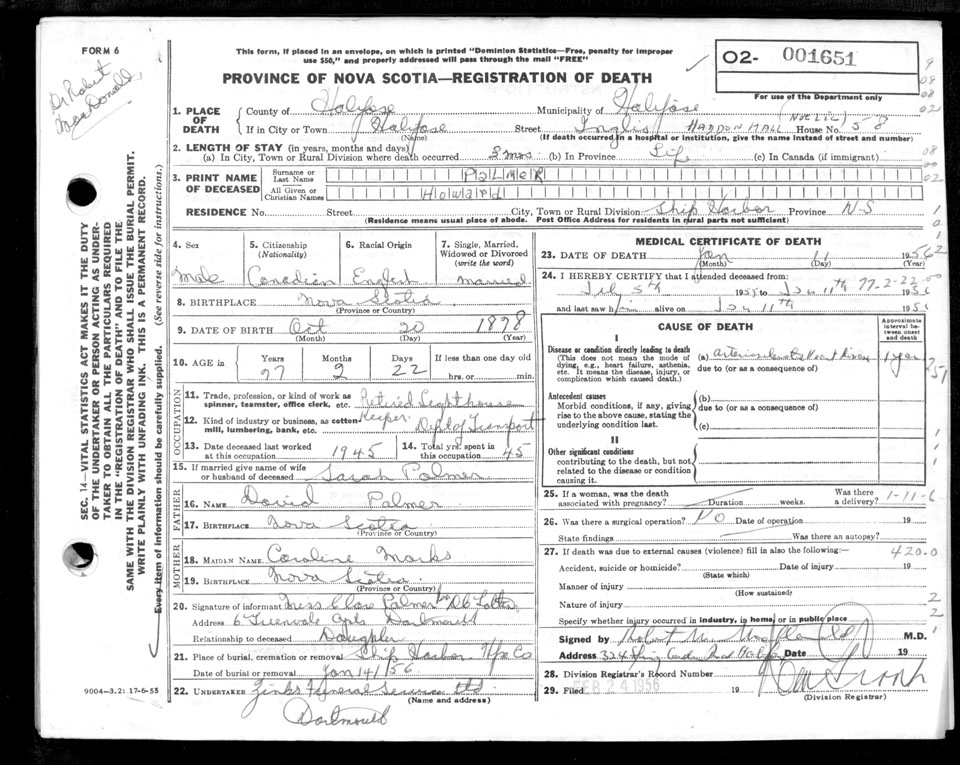 FORM 6
Dr Robert
MacDonald
This form, if placed in an envelope, on which is printed "Dominion Statistics—Free, penalty for improper
use $50," and properly addressed will pass through the mail "FREE"
O2- 001651
For use of the Department only
PROVINCE OF NOVA SCOTIA—REGISTRATION OF DEATH
1. PLACE OF DEATH
County of Halifax Municipality of Halifax
If in City or Town Halifax Street Inglis HADDON HALL House No. 58
(Name) (If death occurred in a hospital or institution, give the name instead of street and number)
2. LENGTH OF STAY (in years, months and days)
(a) In City, Town or Rural Division where death occurred 3 mos. (b) In Province Life (c) In Canada (if immigrant)
3. PRINT NAME OF DECEASED
Surname or Last Name PALMER
All Given or Christian Names Howard
RESIDENCE No. Street City, Town or Rural Division Ship Harbor Province N-S
(Residence means usual place of abode. Post Office Address for residents in rural parts not sufficient)
4. Sex 5. Citizenship (Nationality) 6. Racial Origin 7. Single, Married, Widowed or Divorced (write the word)
Male Canadian English Married
8. BIRTHPLACE Nova Scotia
(Province or Country)
9. DATE OF BIRTH Oct 20 1878
(Month) (Day) (Year)
10. AGE in Years Months Days If less than one day old
77 2 22 hrs. or min.
OCCUPATION
11. Trade, profession, or kind of work as spinner, teamster, office clerk, etc. Retired Lighthouse
Keeper
12. Kind of industry or business, as cotton mill, lumbering, bank, etc. Dept of Transport
13. Date deceased last worked at this occupation 1945 14. Total yrs. spent in this occupation 45
15. If married give name of wife or husband of deceased Sarah Palmer
FATHER
16. NAME David Palmer
17. BIRTHPLACE Nova Scotia
(Province or Country)
MOTHER
18. MAIDEN NAME Caroline Marks
19. BIRTHPLACE Nova Scotia
(Province or Country)
20. Signature of informant Miss Clare Palmer
Address 6 Greenvale Apts Dartmouth
Relationship to deceased Daughter
21. Place of burial, cremation or removal Ship Harbor Hfx Co
Date Jan 14/56
22. UNDERTAKER Zinks Funeral Service Ltd
(Name and address)
Dartmouth
MEDICAL CERTIFICATE OF DEATH
23. DATE OF DEATH Jan 11 1956
(Month) (Day) (Year)
24. I HEREBY CERTIFY that I attended deceased from:
July 5th 1955 to Jan 11th 1956
77-2-22
and last saw him alive on Jan 11th 1956
CAUSE OF DEATH
Approximate interval between onset and death
I
Disease or condition directly leading to death
(This does not mean the mode of dying, e.g., heart failure, asthenia, etc. It means the disease, injury, or complication which caused death.)
(a) Arteriosclerotic Heart Disease 1 year
due to (or as a consequence of)
Antecedent causes
Morbid conditions, if any, giving rise to the above cause, stating the underlying condition last.
(b)
due to (or as a consequence of)
(c)
II
Other significant conditions
contributing to the death, but not related to the disease or condition causing it.
25. If a woman, was the death associated with pregnancy? Duration weeks. Was there a delivery?
1-11-6
26. Was there a surgical operation? NO Date of operation 19
State findings Was there an autopsy?
27. If death was due to external causes (violence) fill in also the following:—
420.0
Accident, suicide or homicide? Date of injury 19
(State which)
Manner of injury
(How sustained)
Nature of injury
Specify whether injury occurred in industry, in home, or in public place
Signed by Robert M. MacDonald M.D.
Address 324 Spring Garden Road Halifax Date 19
28. Division Registrar's Record Number
29. Filed FEB 24 1956 19
(Division Registrar)
SEC. 14—VITAL STATISTICS ACT MAKES IT THE DUTY
OF THE UNDERTAKER OR PERSON ACTING AS UNDER-
TAKER TO OBTAIN ALL THE PARTICULARS REQUIRED
IN THE "REGISTRATION OF DEATH" AND TO FILE THE
SAME WITH THE DIVISION REGISTRAR WHO SHALL ISSUE THE BURIAL PERMIT.
WRITE PLAINLY WITH UNFADING INK. THIS IS A PERMANENT RECORD.
Every item of information should be carefully supplied. (See reverse side for instructions.)
9004—3.2: 17-6-55